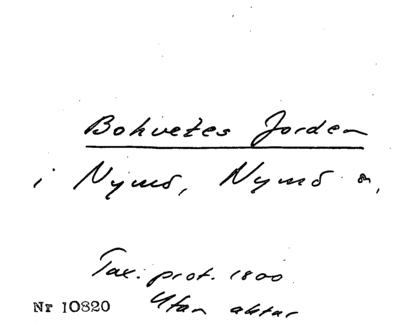 Bohvetes Jorden
i Nymö, Nymö s,
Tax. prot. 1800
Utan aktar
Nr 10820